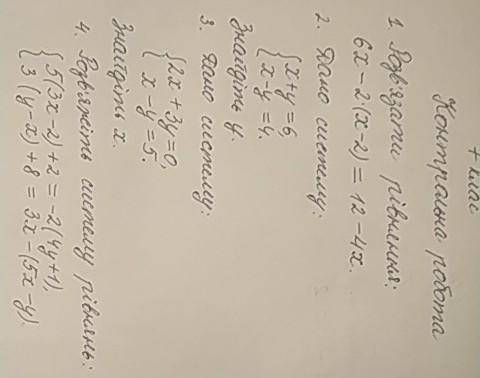 7 клас
Контрольна робота
1. Розв'язати рівняння:
6x - 2(x-2) = 12 - 4x.
2. Дано систему:
{ x+y=6,
x-y=4.
Знайдіть y.
3. Дано систему:
{ 2x+3y=0,
x-y=5.
Знайдіть x.
4. Розв'яжіть систему рівнянь:
{ 5(3x-2)+2 = -2(4y+1),
3(y-x)+8 = 3x-(5x-y).